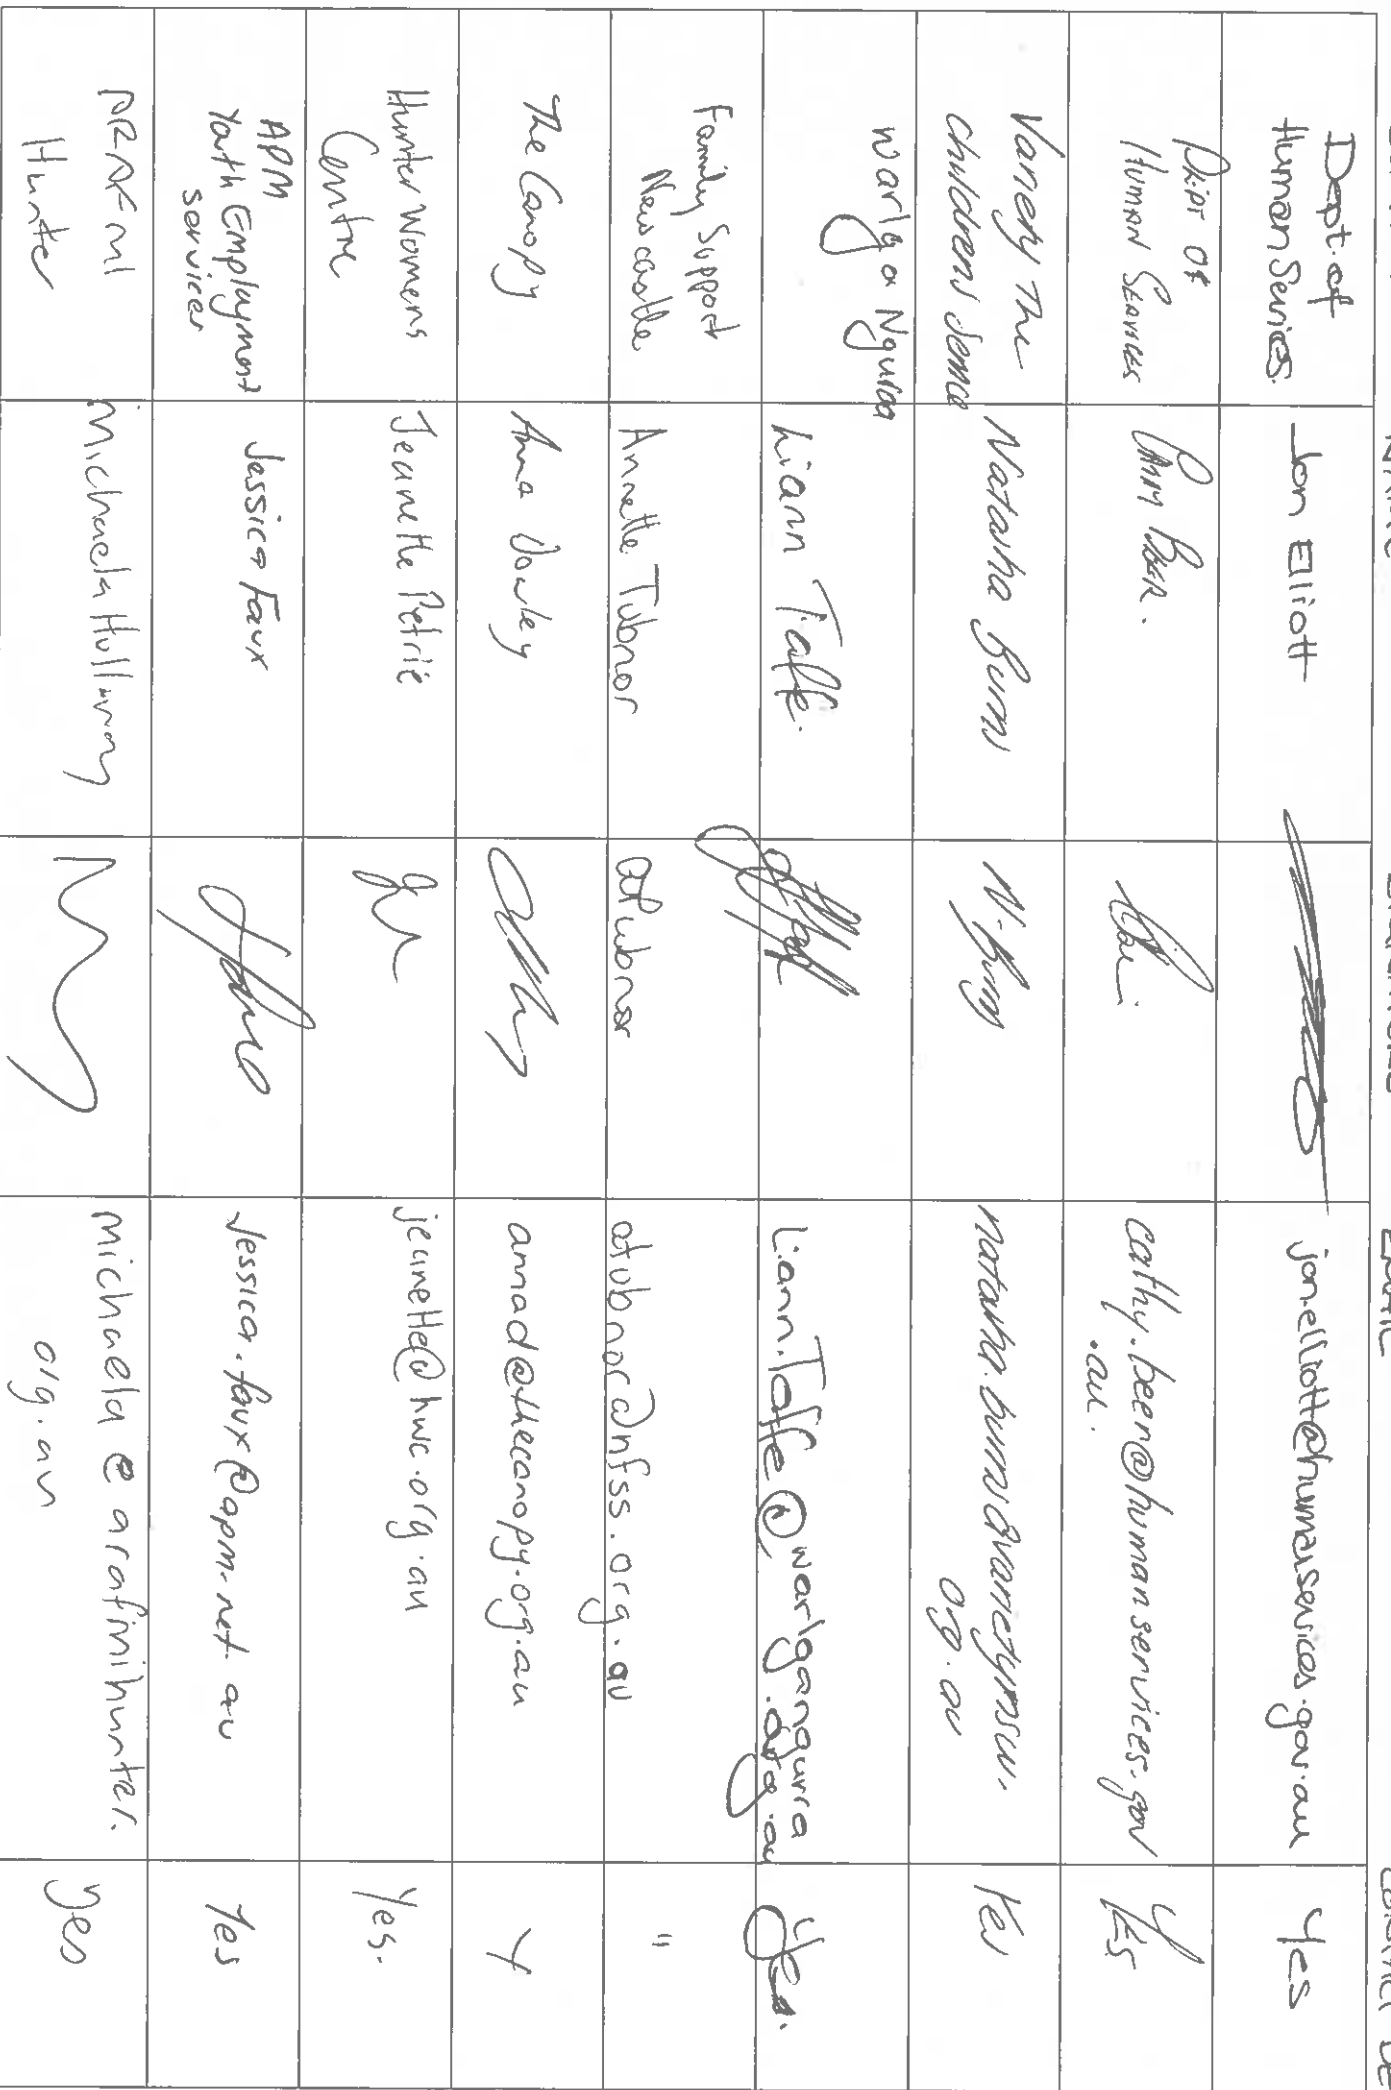 NAME
EMAIL
Dept. of
Human Services.
Jon Elliott
jon.elliott@humanservices.gov.au
Yes
Dept of
Human Services
cathy.beer@humanservices.gov
.au.
Yes
Variety The
childrens
Natasha Burns
N. Burns
natasha.burns@varietynsw.
org.au
Yes
Warlga Ngurra
Liann Taffe.
Liann.Taffe@warlgangurra.org.au
Yes.
Family Support
Newcastle
Annette Tubnor
atubnor
atubnor@nfss.org.au
"
The Canopy
Anna Dowley
annad@thecanopy.org.au
Y
Hunter Womens
Centre
Jeanette Petrie
jeanette@hwc.org.au
Yes.
APM
Youth Employment
services
Jessica Faux
Jessica.faux@apm.net.au
Yes
ARAFMI
Hunter
Michaela
michaela@arafmihunter.
org.au
yes